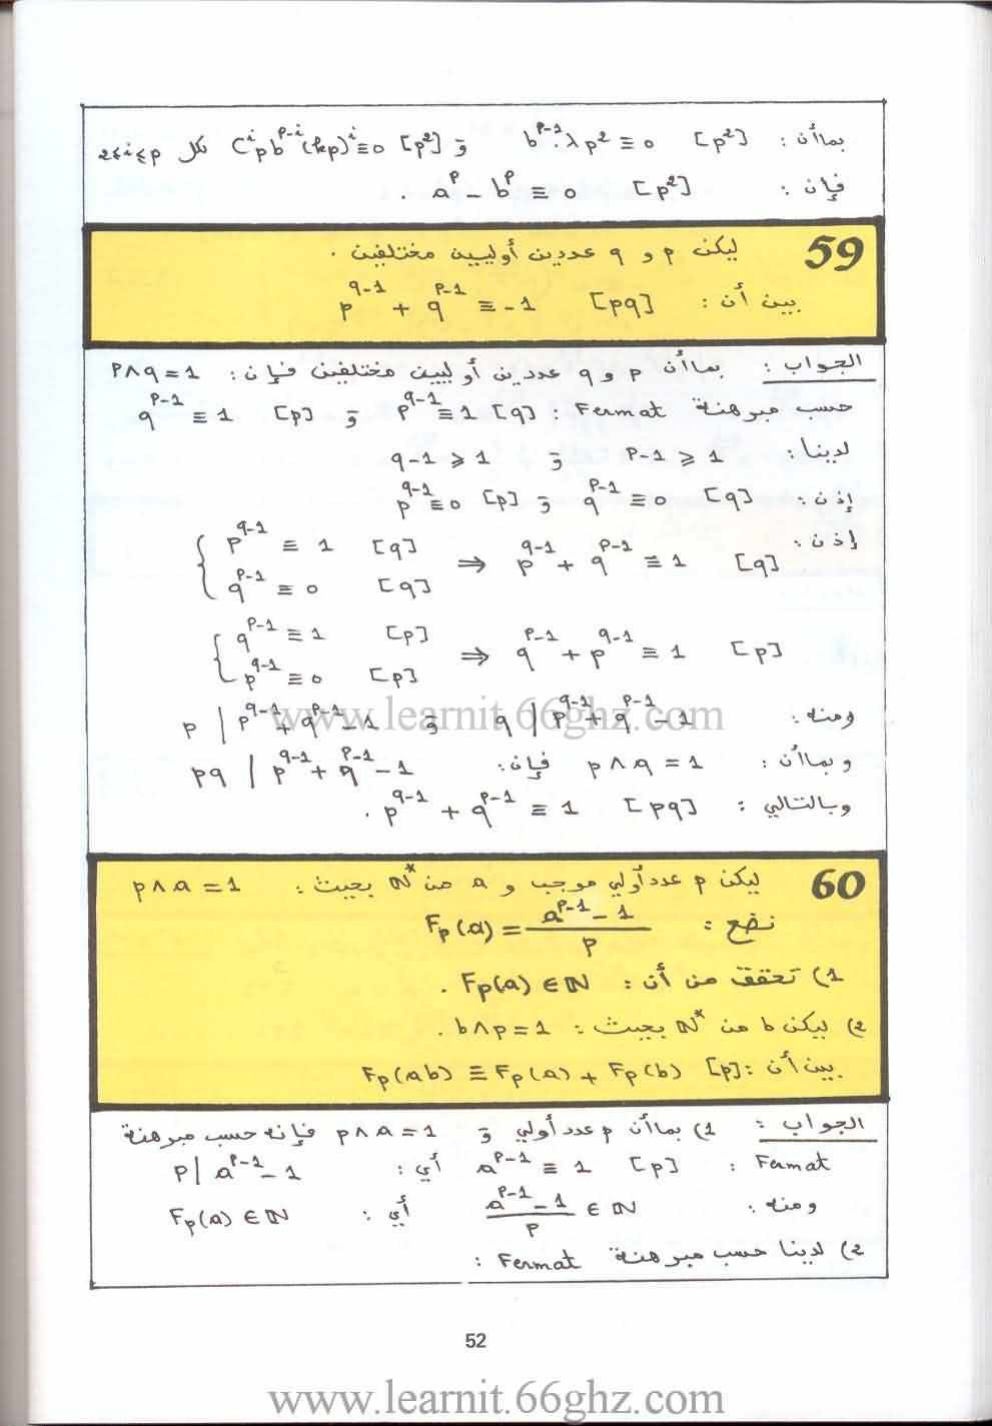 بما أن : b^{p-1}.λp² ≡ 0 [p²] و C^i_p b^{p-i}(kp)^i ≡ 0 [p²] لكل 2≤i≤p
فإن : a^p - b^p ≡ 0 [p²] .
59 ليكن p و q عددين أوليين مختلفين .
بين أن : p^{q-1} + q^{p-1} ≡ -1 [pq]
الجواب : بما أن p و q عددين أوليين مختلفين فإن : p∧q=1
حسب مبرهنة Fermat : p^{q-1} ≡ 1 [q] و q^{p-1} ≡ 1 [p]
لدينا : p-1 ≥ 1 و q-1 ≥ 1
إذن : q^{p-1} ≡ 0 [q] و p^{q-1} ≡ 0 [p]
إذن : { p^{q-1} ≡ 1 [q]
q^{p-1} ≡ 0 [q] ⇒ p^{q-1} + q^{p-1} ≡ 1 [q]
{ q^{p-1} ≡ 1 [p]
p^{q-1} ≡ 0 [p] ⇒ q^{p-1} + p^{q-1} ≡ 1 [p]
ومنه : q | p^{q-1} + q^{p-1} - 1 و p | p^{q-1} + q^{p-1} - 1
www.learnit.66ghz.com
وبما أن : p∧q=1 فإن : pq | p^{q-1} + q^{p-1} - 1
وبالتالي : p^{q-1} + q^{p-1} ≡ 1 [pq] .
60 ليكن p عدد أولي موجب و a من ℕ* بحيث : p∧a=1
نضع : F_p(a) = (a^{p-1} - 1)/p
1) تحقق من أن : F_p(a) ∈ ℕ .
2) ليكن b من ℕ* بحيث : b∧p=1 .
بين أن : F_p(ab) ≡ F_p(a) + F_p(b) [p]
الجواب : 1) بما أن p عدد أولي و p∧a=1 فإنه حسب مبرهنة
Fermat : a^{p-1} ≡ 1 [p] أي : p | a^{p-1} - 1
ومنه : (a^{p-1} - 1)/p ∈ ℕ أي : F_p(a) ∈ ℕ
2) لدينا حسب مبرهنة Fermat :
52
www.learnit.66ghz.com